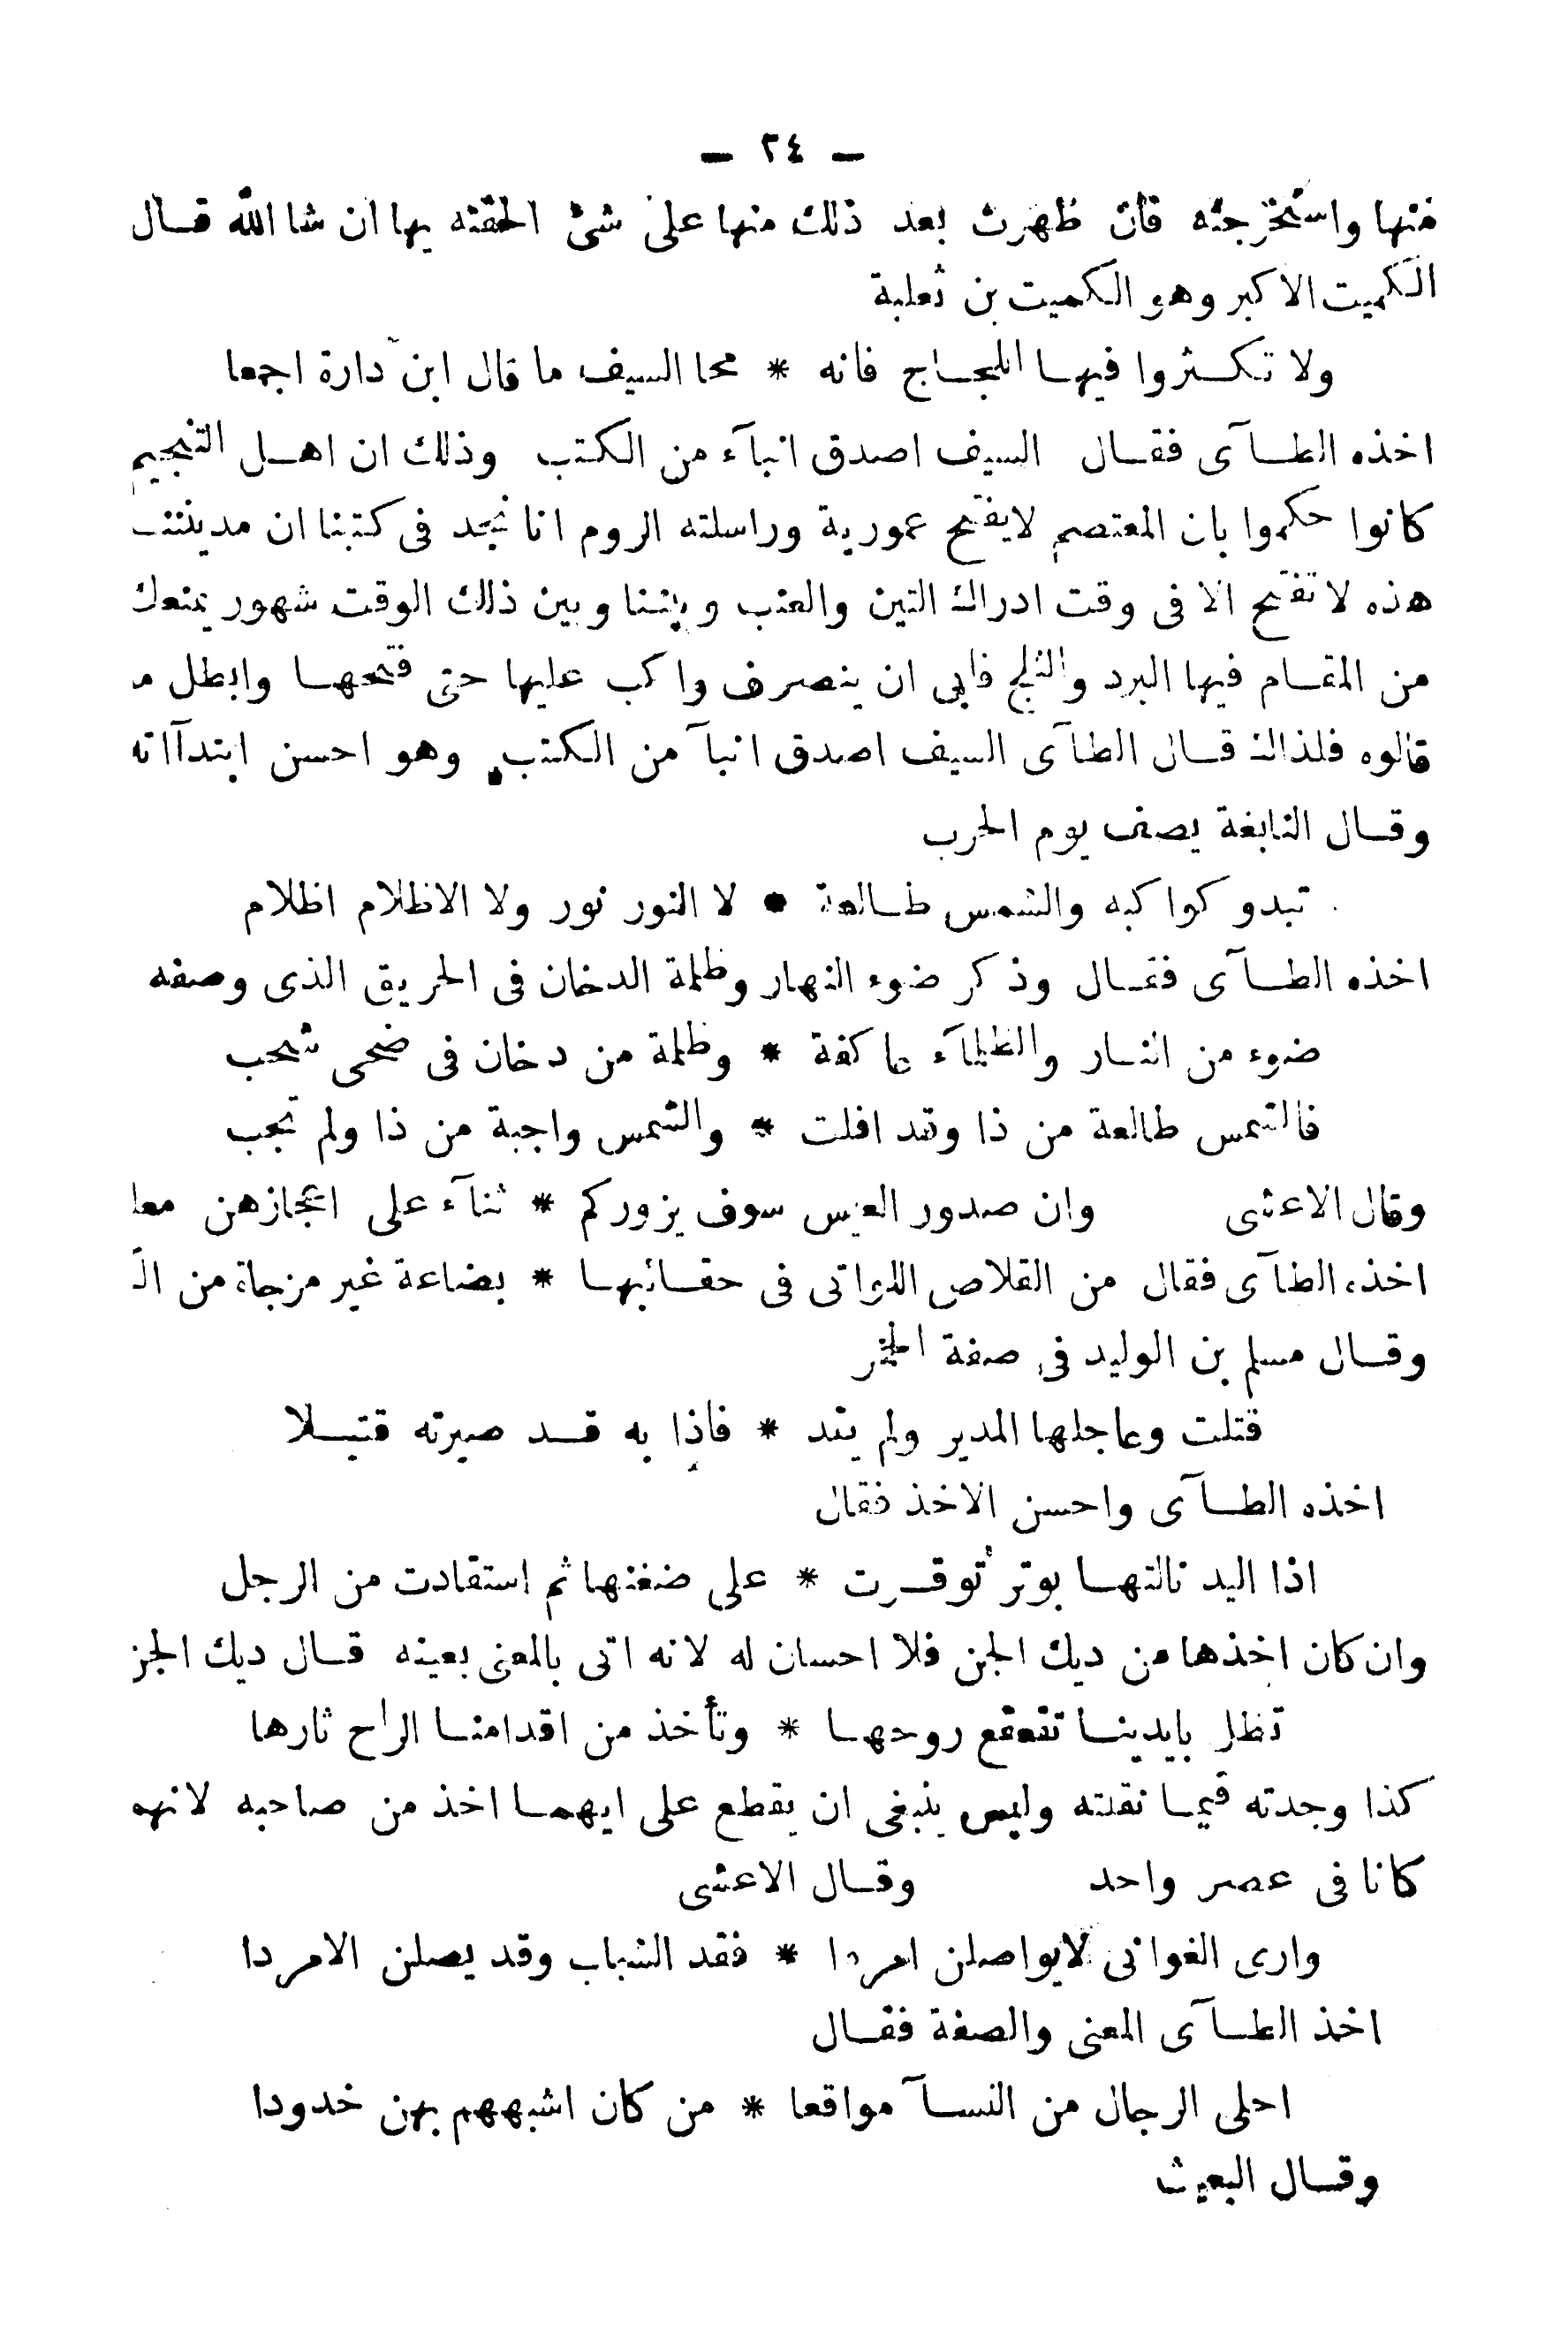 — ٢٤ —
منها واستخرجته فان ظهرت بعد ذلك منها على شئ الحقته بها ان شا الله قال
الكميت الاكبر وهو الكميت بن ثعلبة
ولا تكثروا فيها اللجاج فانه * محا السيف ما قال ابن دارة اجمعا
اخذه الطآى فقال السيف اصدق انبآء من الكتب وذلك ان اهل التنجيم
كانوا حكموا بان المعتصم لايفتح عمورية وراسلته الروم انا نجد فى كتبنا ان مدينتنـ
هذه لا تفتح الا فى وقت ادراك التين والعنب وبيننا وبين ذلك الوقت شهور يمنعك
من المقام فيها البرد والثلج فابى ان ينصرف واكب عليها حتى فتحهـا وابطل مـ
قالوه فلذالك قال الطآى السيف اصدق انبآ من الكتب وهو احسن ابتدآاته
وقال النابغة يصف يوم الحرب
تبدو كواكبه والشمس طالعة * لا النور نور ولا الاظلام اظلام
اخذه الطآى فقال وذكر ضوء النهار وظلمة الدخان فى الحريق الذى وصفه
ضوء من النار والظلمآء عاكفة * وظلمة من دخان فى ضحى شحب
فالشمس طالعة من ذا وقد افلت * والشمس واجبة من ذا ولم تجب
وقال الاعشى وان صدور العيس سوف يزوركم * ثنآء على اعجازهن معلـ
اخذه الطآى فقال من القلاص اللواتى فى حقائبهـا * بضاعة غير مزجاة من الـ
وقال مسلم بن الوليد فى صفة الخمر
قتلت وعاجلها المدير ولم يقد * فاذا به قد صيرته قتيلا
اخذه الطآى واحسن الاخذ فقال
اذا اليد نالتهـا بوتر توقرت * على ضغنها ثم استقادت من الرجل
وان كان اخذها من ديك الجن فلا احسان له لانه اتى بالمعنى بعينه قال ديك الجن
تظل بايدينـا تقعقع روحهـا * وتأخذ من اقدامنـا الراح ثارها
كذا وجدته فيمـا نقلته وليس ينبغى ان يقطع على ايهمـا اخذ من صاحبه لانهمـ
كانا فى عصر واحد وقال الاعشى
وارى الغوانى لايواصلن امردا * فقد الشباب وقد يصلن الامردا
اخذ الطآى المعنى والصفة فقال
احلى الرجال من النسآ مواقعا * من كان اشبههم بهن خدودا
وقال البعيث